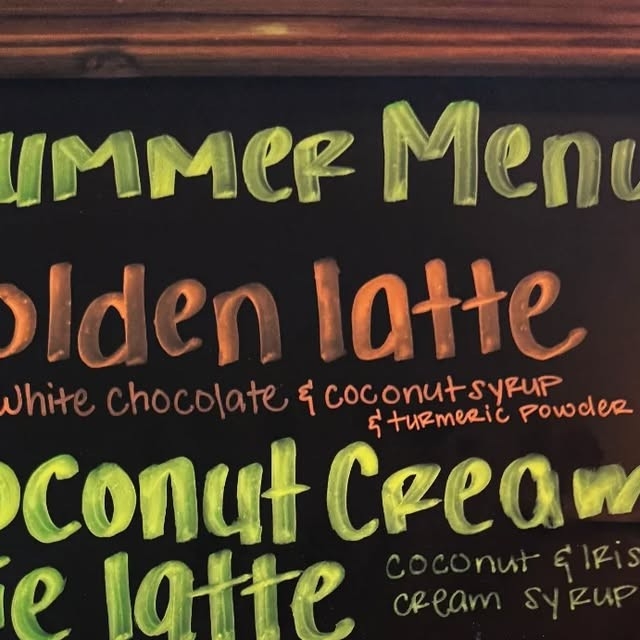 ummer Menu
olden latte
white chocolate & coconut syrup
& turmeric powder
oconut Cream
ie latte
coconut & Iris
cream syrup